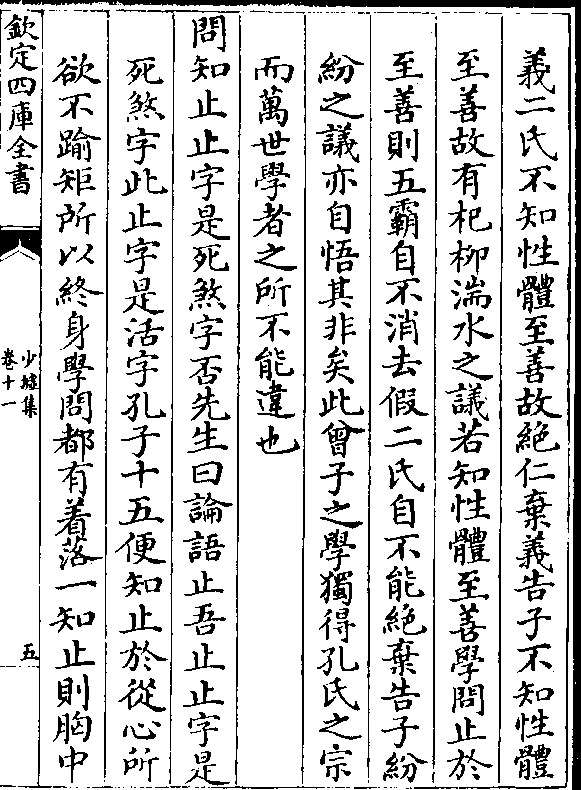 義二氏不知性體至善故絕仁棄義告子不知性體
至善故有杞柳湍水之議若知性體至善學問止於
至善則五霸自不消去假二氏自不能絕棄告子紛
紛之議亦自悟其非矣此曾子之學獨得孔氏之宗
而萬世學者之所不能違也
問知止止字是死煞字否先生曰論語止吾止止字是
死煞字此止字是活字孔子十五便知止於從心所
欲不踰矩所以終身學問都有着落一知止則胸中
欽定四庫全書
少墟集
卷十一
五